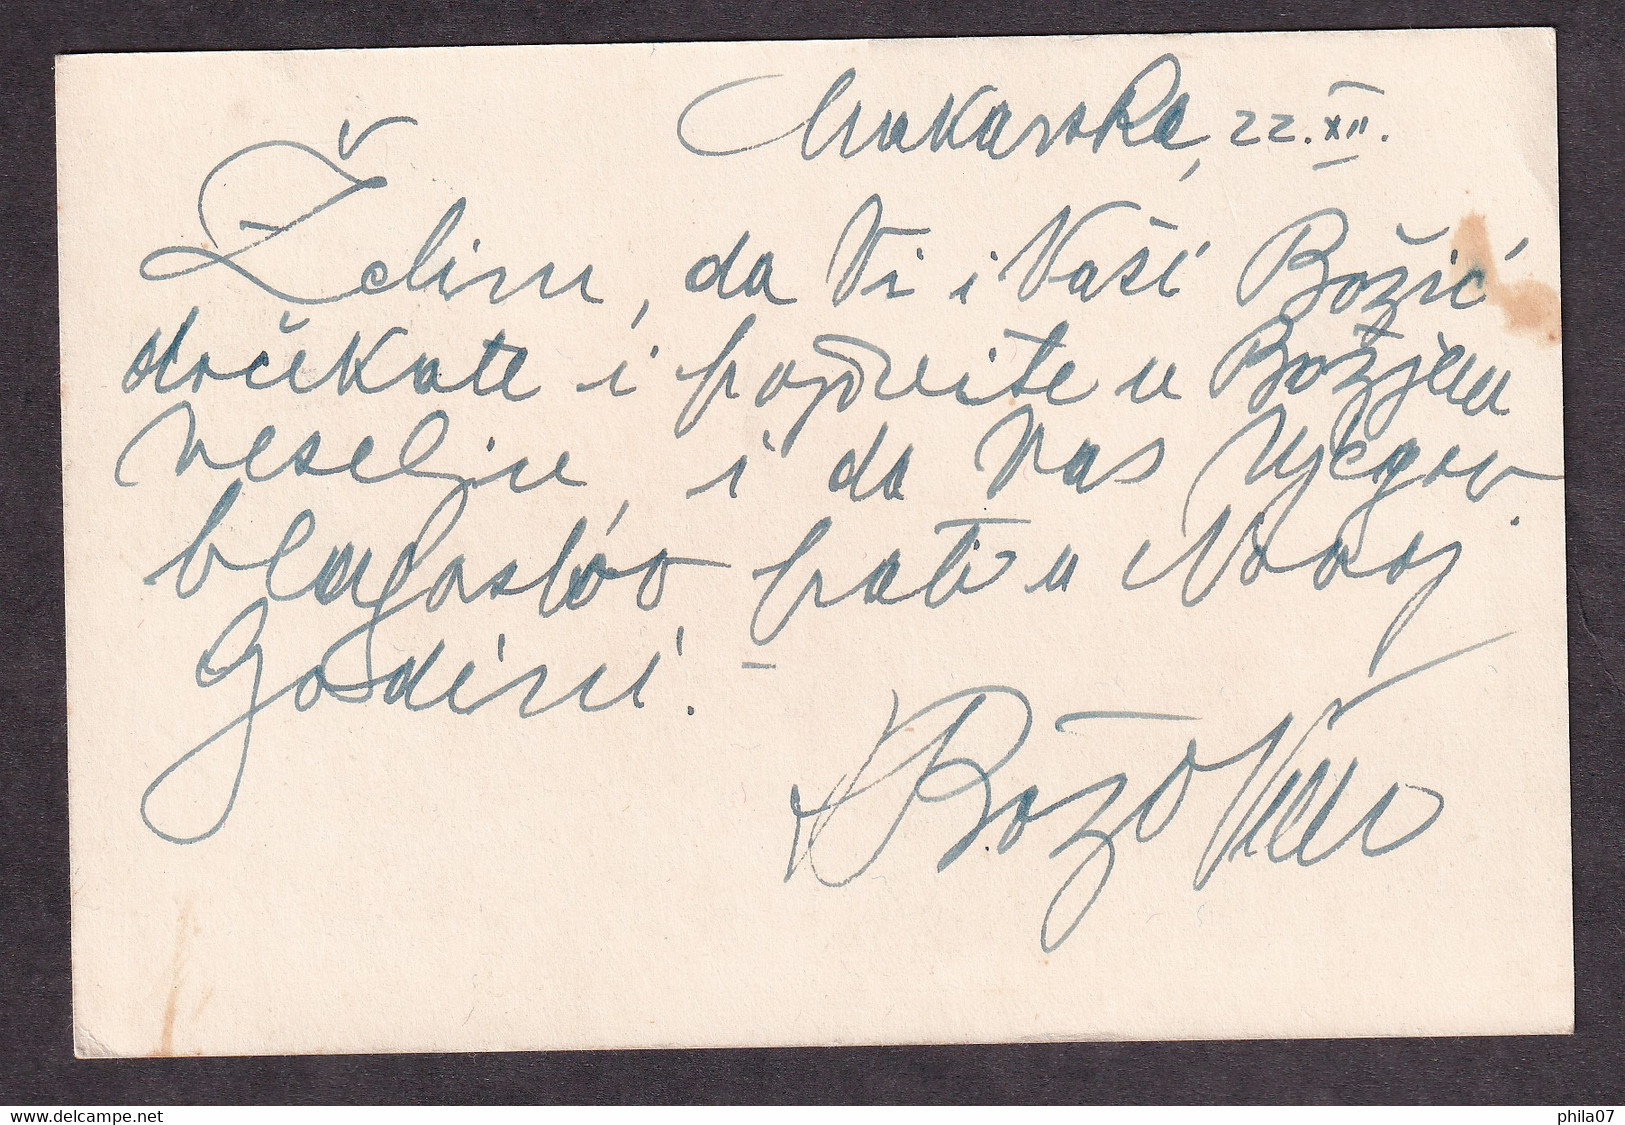 Makarska, 22. XII.
Želim, da Vi i Vaši Božić
dočekate i provedite u Božjem
veselju, i da Vas Njegov
blagoslov prati u Novoj
Godini. -
Božo
www.delcampe.net
phila07